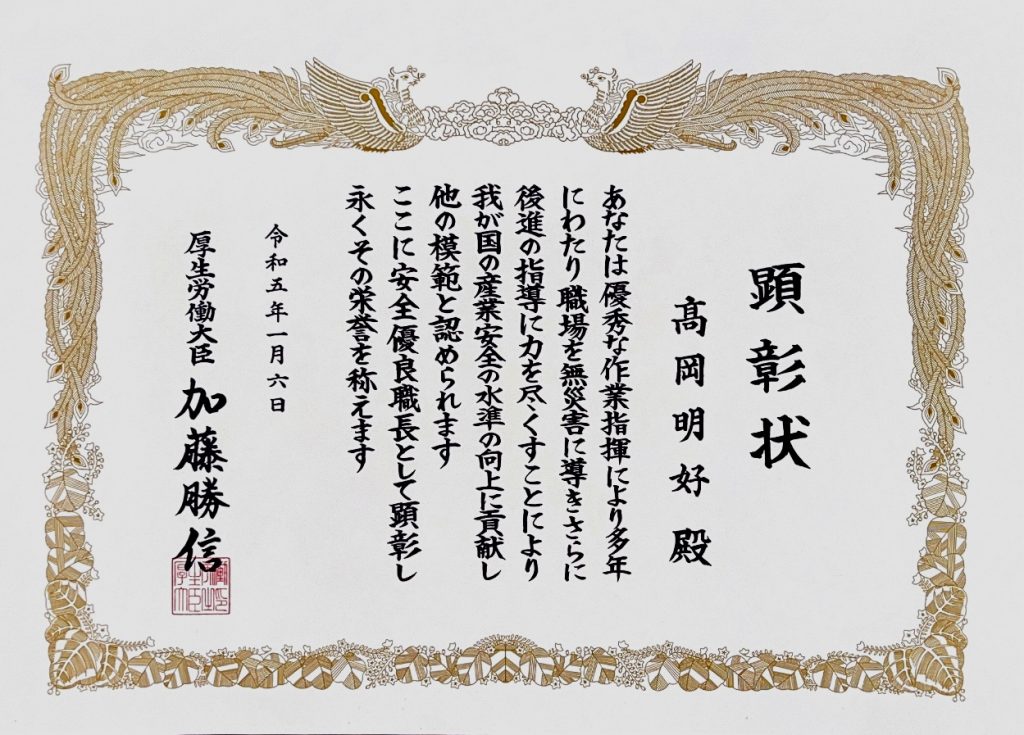 顕彰状
髙岡明好 殿
あなたは優秀な作業指揮により多年
にわたり職場を無災害に導きさらに
後進の指導に力を尽くすことにより
我が国の産業安全の水準の向上に貢献し
他の模範と認められます
ここに安全優良職長として顕彰し
永くその栄誉を称えます
令和五年一月六日
厚生労働大臣 加藤勝信